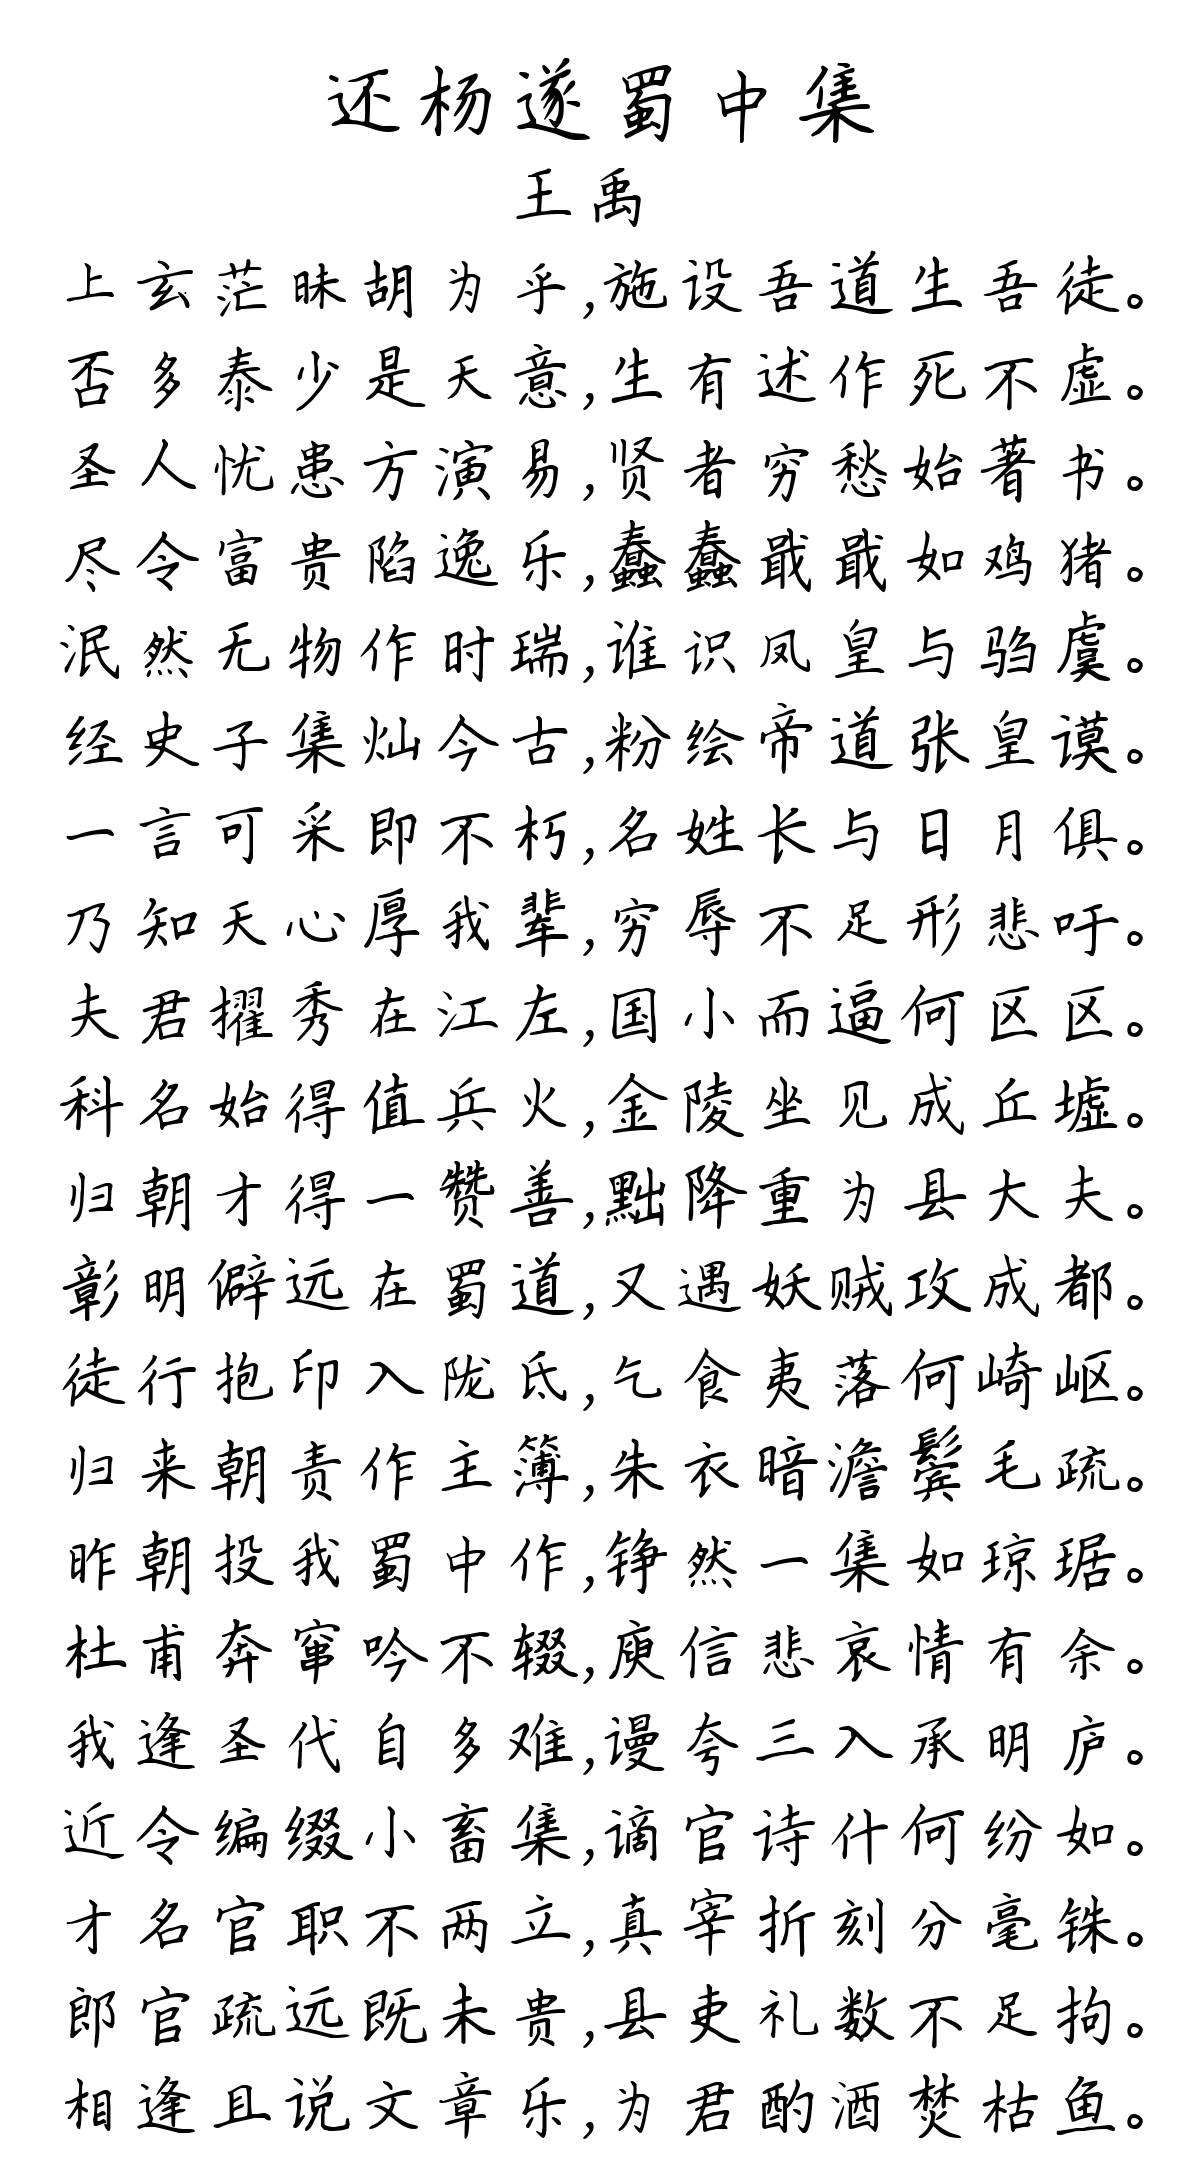 还杨遂蜀中集
王禹
上玄茫昧胡为乎,施设吾道生吾徒。
否多泰少是天意,生有述作死不虚。
圣人忧患方演易,贤者穷愁始著书。
尽令富贵陷逸乐,蠢蠢戢戢如鸡猪。
泯然无物作时瑞,谁识凤皇与驺虞。
经史子集灿今古,粉绘帝道张皇谟。
一言可采即不朽,名姓长与日月俱。
乃知天心厚我辈,穷辱不足形悲吁。
夫君擢秀在江左,国小而逼何区区。
科名始得值兵火,金陵坐见成丘墟。
归朝才得一赞善,黜降重为县大夫。
彰明僻远在蜀道,又遇妖贼攻成都。
徒行抱印入陇氐,乞食夷落何崎岖。
归来朝责作主簿,朱衣暗澹鬓毛疏。
昨朝投我蜀中作,铮然一集如琼琚。
杜甫奔窜吟不辍,庾信悲哀情有余。
我逢圣代自多难,谩夸三入承明庐。
近令编缀小畜集,谪官诗什何纷如。
才名官职不两立,真宰折刻分毫铢。
郎官疏远既未贵,县吏礼数不足拘。
相逢且说文章乐,为君酌酒焚枯鱼。